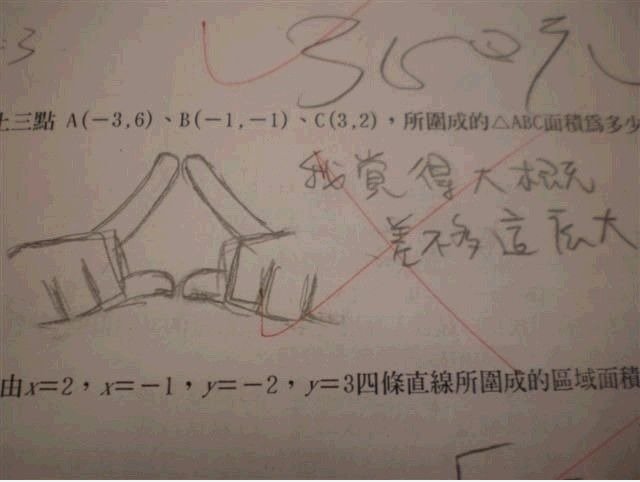 -3
360元
上三點 A(-3,6)、B(-1,-1)、C(3,2),所圍成的△ABC面積為多少
我覺得大概
差不多這麼大
由x=2,x=-1,y=-2,y=3四條直線所圍成的區域面積